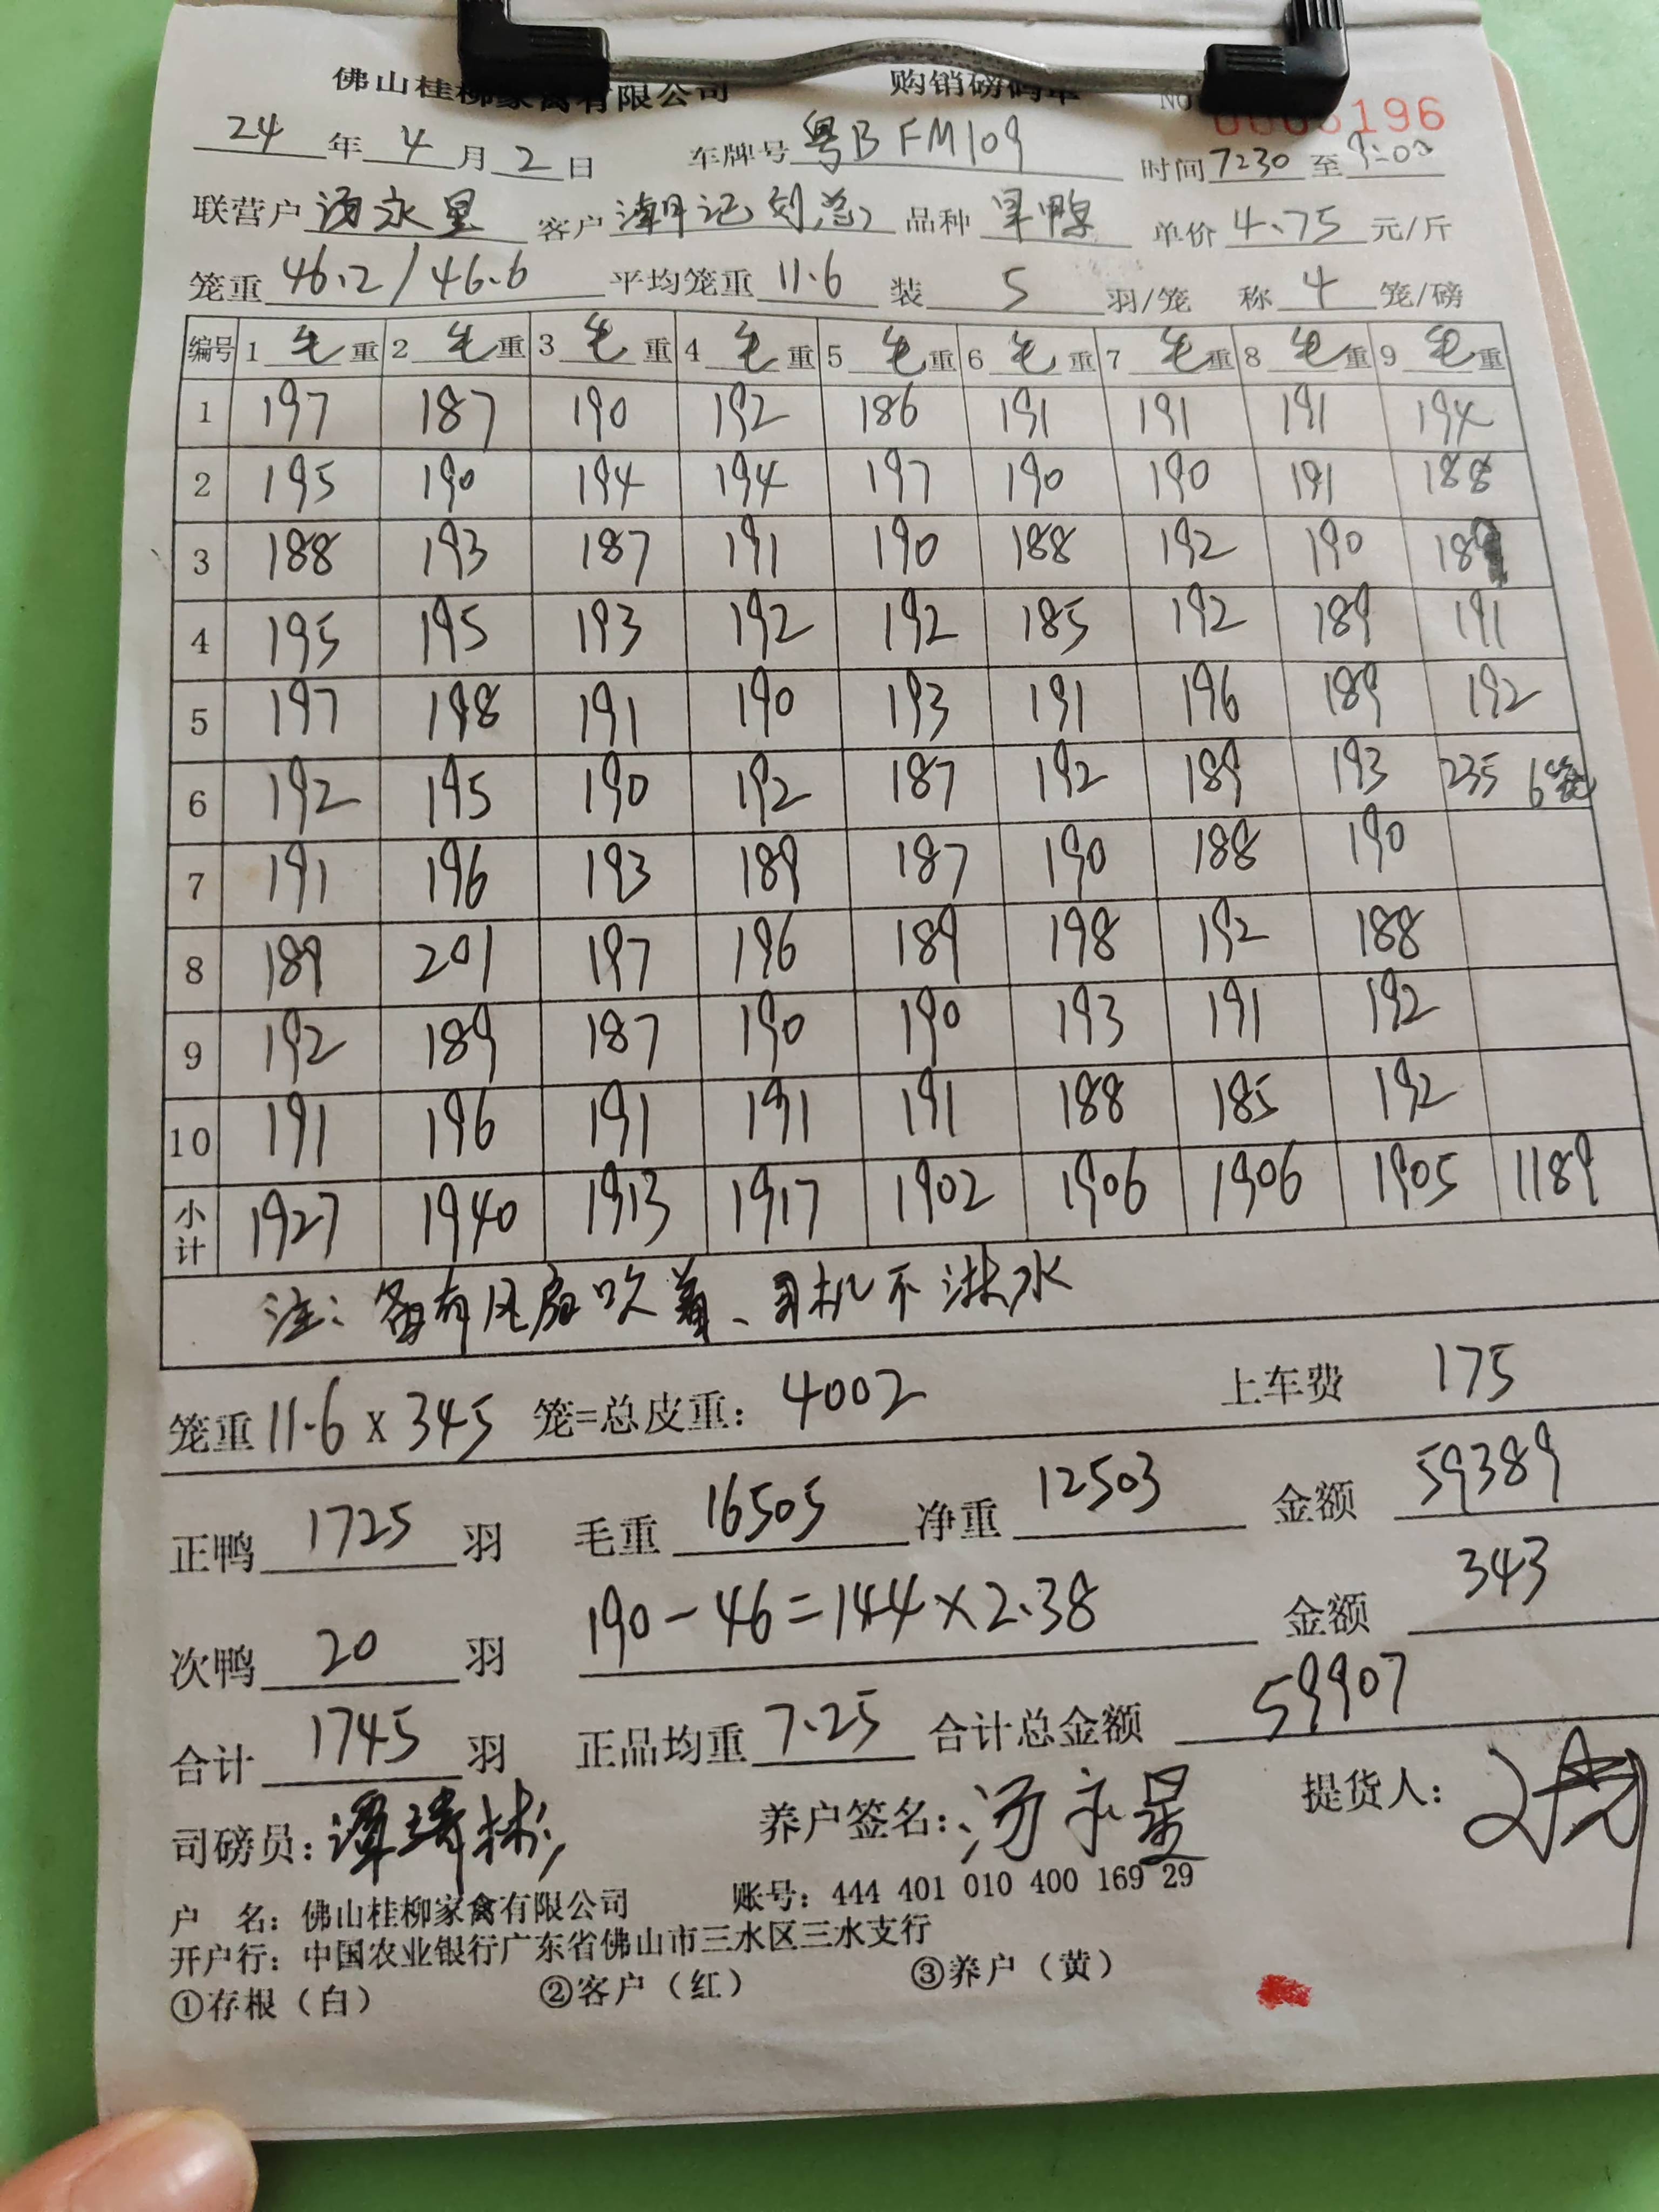 佛山桂柳家禽有限公司 购销磅码单 NO 0006196
24年4月2日 车牌号粤BFM109 时间7:30至9:00
联营户汤永星 客户潮记刘总 品种旱鸭 单价4.75元/斤
笼重46.2/46.6 平均笼重11.6 装5羽/笼 称4笼/磅
编号 1毛重 2毛重 3毛重 4毛重 5毛重 6毛重 7毛重 8毛重 9毛重
1 197 187 190 192 186 191 191 191 194
2 195 190 194 194 197 190 190 191 188
3 188 193 187 191 190 188 192 190 189
4 195 195 193 192 192 185 192 189 191
5 197 198 191 190 193 191 196 189 192
6 192 195 190 192 187 192 189 193 235 6笼
7 191 196 193 189 187 190 188 190
8 189 201 197 196 189 198 192 188
9 192 189 187 190 190 193 191 192
10 191 196 191 191 191 188 185 192
小计 1927 1940 1913 1917 1902 1906 1906 1905 1189
注:备有风扇吹着、司机不淋水
笼重11.6x345笼=总皮重:4002 上车费 175
正鸭1725羽 毛重16505净重12503 金额59389
次鸭20羽 190-46=144×2.38 金额343
合计1745羽 正品均重7.25合计总金额59907
司磅员: 养户签名:汤永星 提货人:
户 名:佛山桂柳家禽有限公司 账号:444 401 010 400 169 29
开户行:中国农业银行广东省佛山市三水区三水支行
①存根(白) ②客户(红) ③养户(黄)